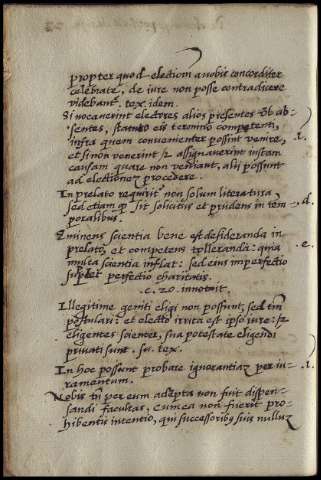 propter quod electioni a nobis concorditer
celebratę, de iure non posse contradicere
videbant. tex. idem.
Si vocaverint electores alios presentes & ab-
sentes, statuto eis termino competenti,
infra quem convenienter possint venire, .c.
et si non venerint & assignaverint iustam
causam quare non veniant, alij possunt
ad electionem procedere.
In prelato requirit non solum literatura
sed etiam q sit solicitus et prudens in tem .d.
poralibus.
Eminens scientia bene est desideranda in
prelato, et competens tolleranda: quia .e.
multa scientia inflat: sed eius imperfectio
suplet perfectio charitatis.
.c. 20. innotuit.
Illegitime geniti eligi non possunt, sed tm
postulari: et electio irrita est ipso iure: &
eligentes scienter, sua potestate eligendi
privati sunt. tex.
In hoc possunt probare ignorantiam per iu-
ramentum.
Nobis tn per eum adepta non fuit dispen-
sandi facultas, cum ea non fuerit pro-
hibentis intentio, qui successoribus suis nullum